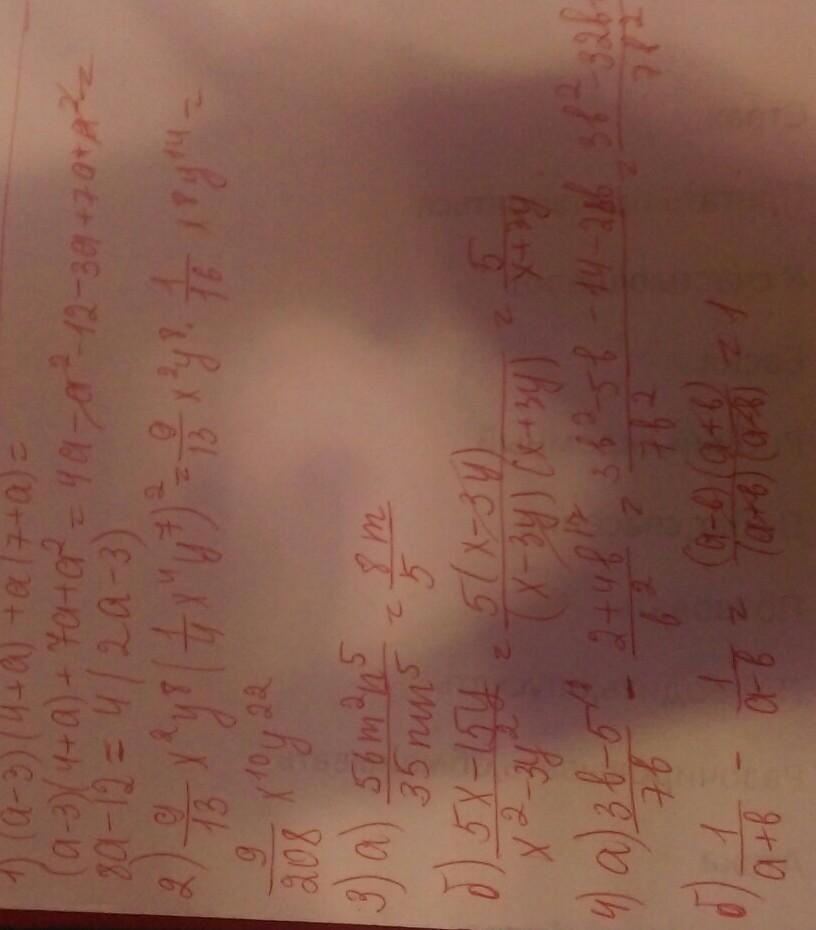 1) (a-3)(4+a) + a(7+a) =
(a-3)(4+a) + 7a + a² = 4a - a² - 12 - 3a + 7a + a² =
8a - 12 = 4(2a - 3)
2) 9/13 x²y⁸ (1/4 x⁴y⁷)² = 9/13 x²y⁸ · 1/16 x⁸y¹⁴ =
9/208 x¹⁰y²²
3) а) 56m²n⁵/35mn⁵ = 8m/5
б) 5x-15y/x²-3y² = 5(x-3y)/(x-3y)(x+3y) = 5/x+3y
4) а) 3b-5/7b - 2+4b/b² = 3b²-5b-14-28b/7b² = 3b²-32b-/7b²
б) 1/a+b - 1/a-b = (a-b)(a+b)/(a+b)(a-b) = 1